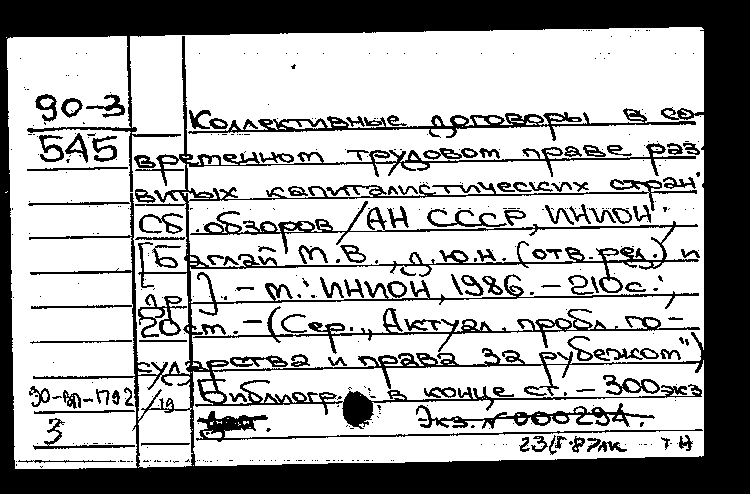 90-3
545
Коллективные договоры в со-
временном трудовом праве раз-
витых капиталистических стран:
Сб. обзоров / АН СССР, ИНИОН;
[Баглай М.В., д.ю.н. (отв. ред.) и
др.]. - М.: ИНИОН, 1986. - 210с.;
20см. - (Сер. "Актуал. пробл. го-
сударства и права за рубежом")
Библиогр. в конце ст. - 300экз
Экз. N 000294.
3